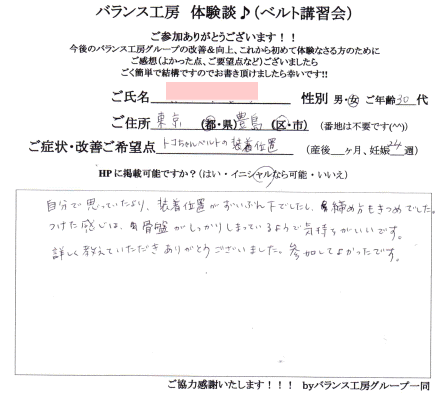 バランス工房 体験談♪(ベルト講習会)
ご参加ありがとうございます!
今後のバランス工房グループの改善&向上、これから初めて体験なさる方のために
ご感想(よかった点、ご要望点など)ございましたら
ごく簡単で結構ですのでお書き頂けましたら幸いです!!
ご氏名 性別 男・女 ご年齢30代
ご住所 東京 都・県)豊島 区・市) (番地は不要です(^^))
ご症状・改善ご希望点 トコちゃんベルトの装着位置 (産後 ヶ月、妊娠24週)
HPに掲載可能ですか?(はい・イニシャルなら可能・いいえ)
自分で思っていたより、装着位置がずいぶん下でしたし、締め方もきつめでした。
つけた感じは、骨盤がしっかりしまっているようで気持ちがいいです。
詳しく教えていただきありがとうございました。参加してよかったです。
ご協力感謝いたします!!! byバランス工房グループ一同